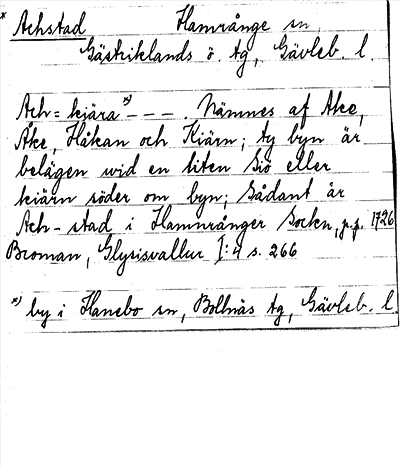 * Achstad Hamrånge sn
Gästriklands ö. tg, Gävleb. l.
Ach = kiära *) - - - . Nämnes af Ake,
Åke, Håkan och Kiärn; ty byn är
belägen wid en liten Siö eller
kiärn söder om byn; Sådant är
Ach-stad i Hamnrånger Socken, p.p. 1726
Broman, Glysisvallur I:4 s. 266
*) by i Hanebo sn, Bollnäs tg, Gävleb. l.